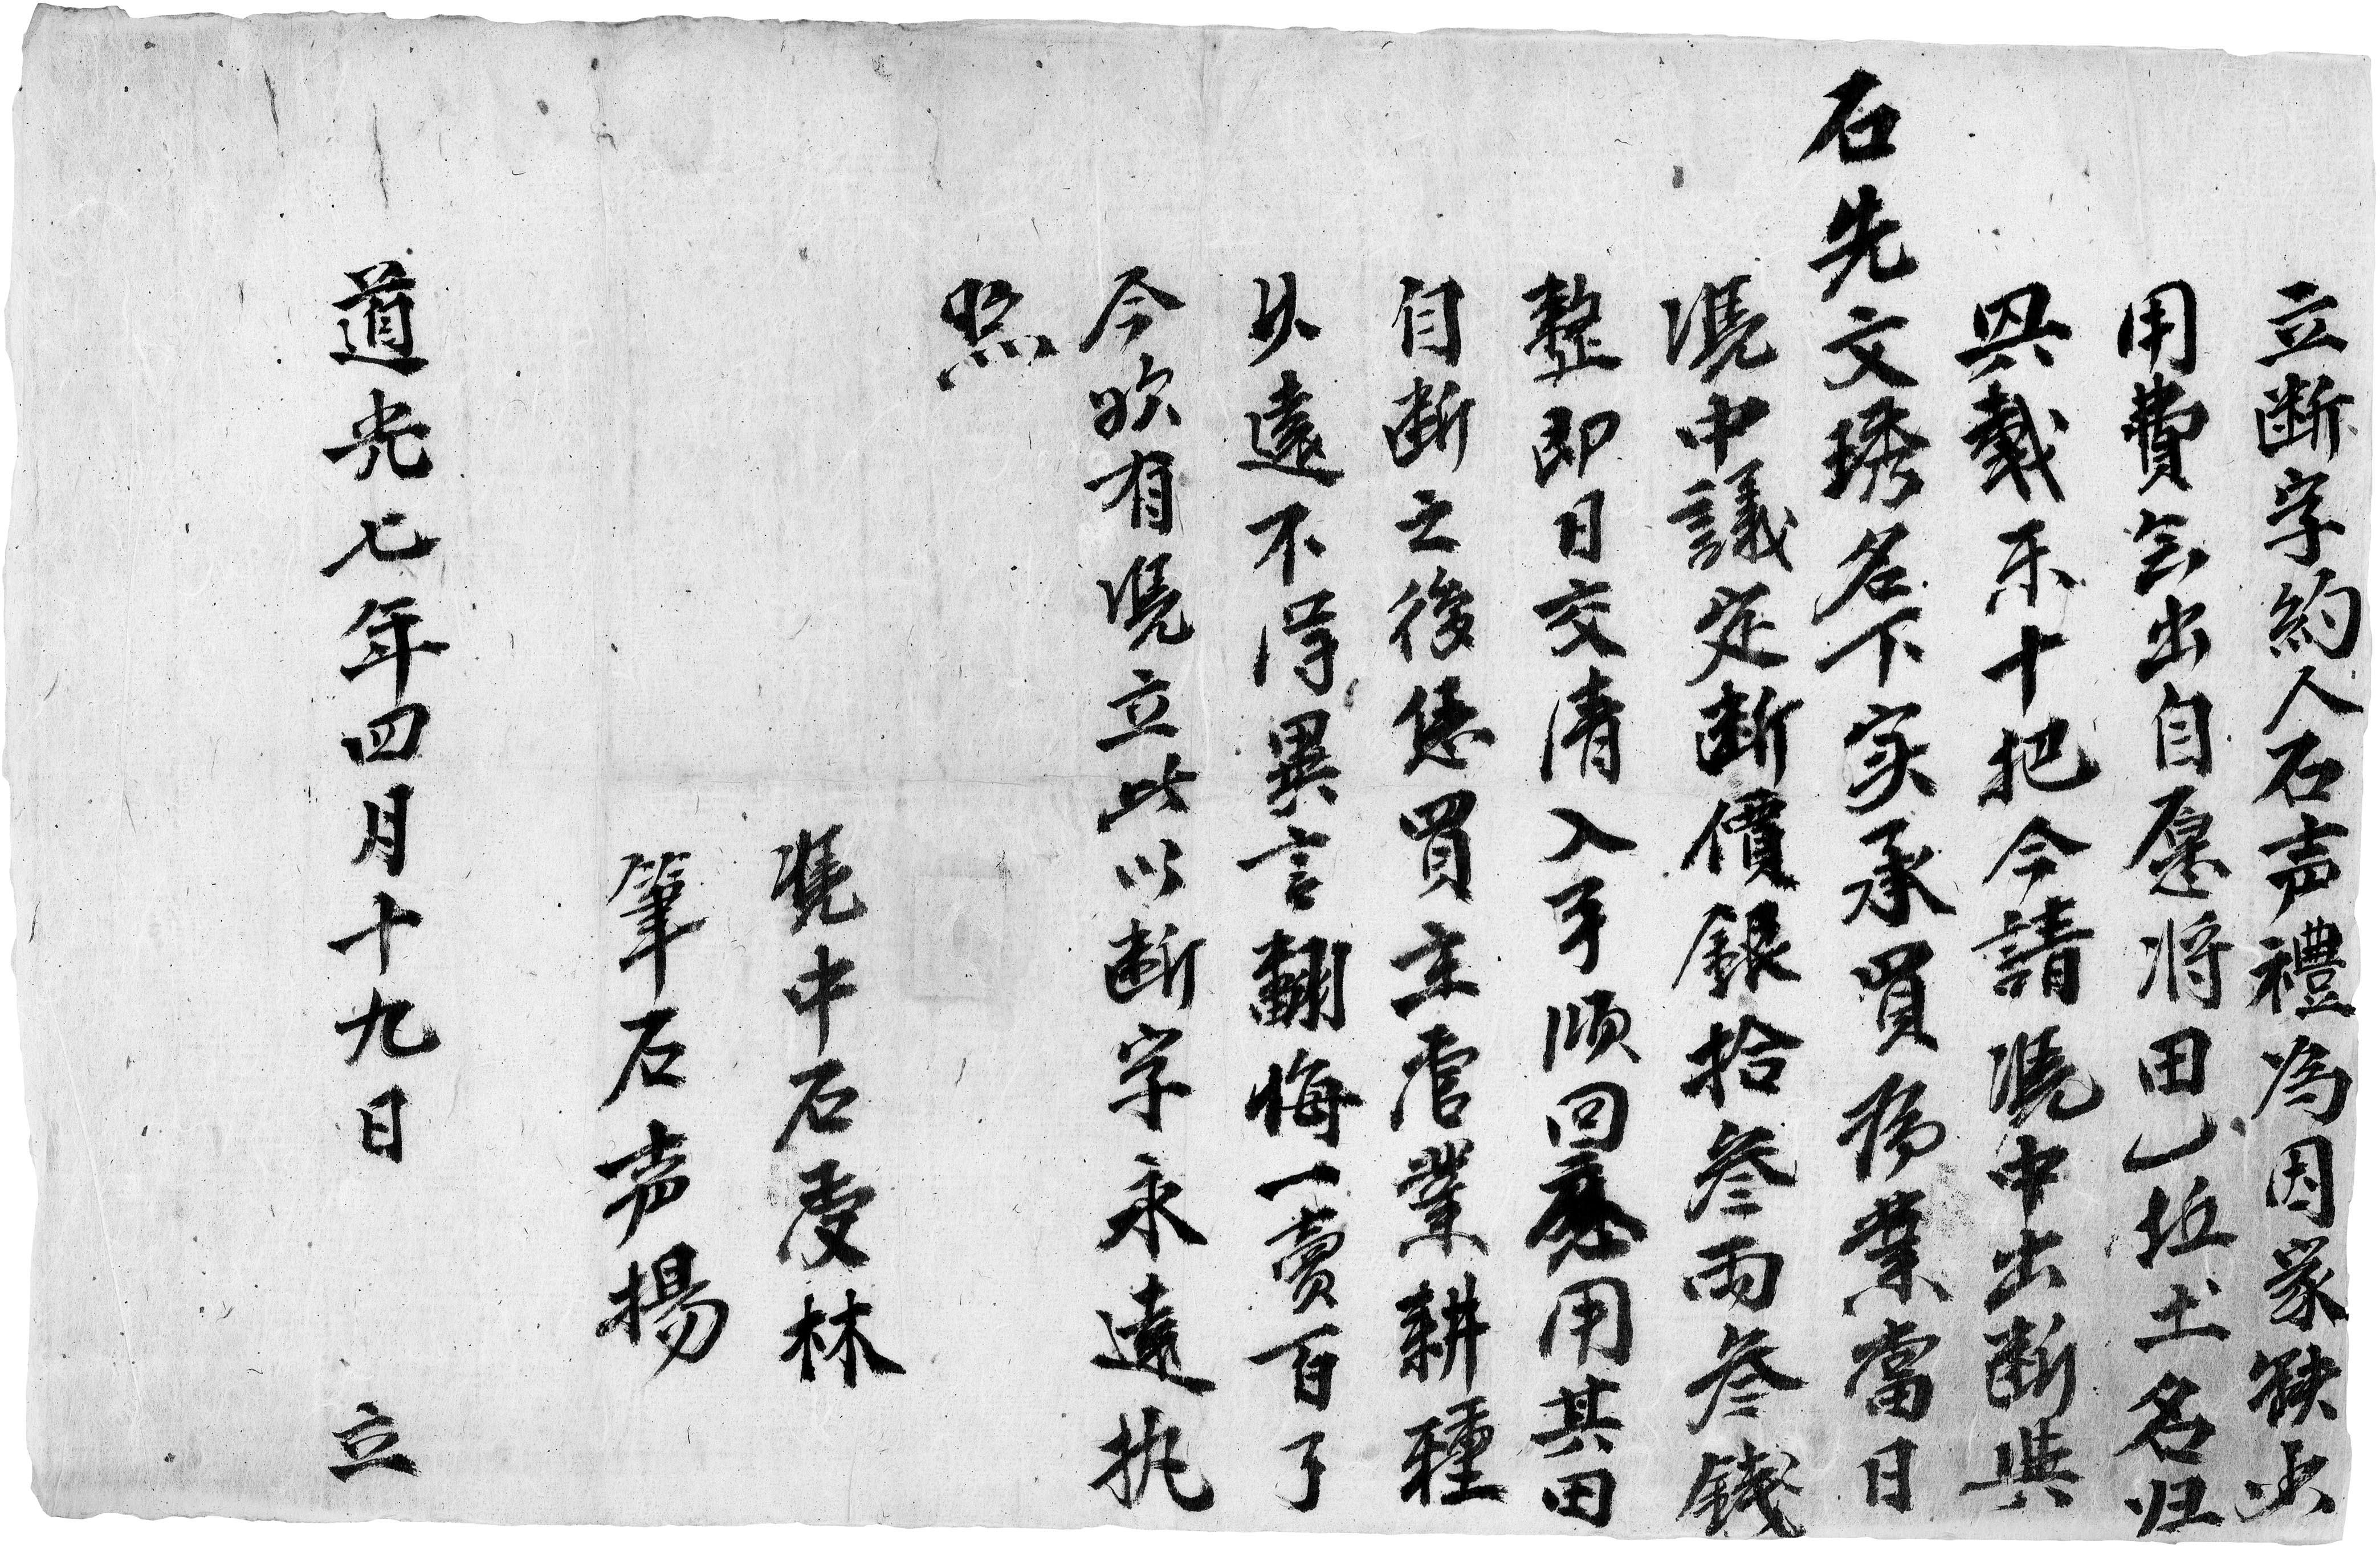 立断字約人石声禮為因家缺少
用費無出自愿将田一坵土名归
與載禾十把今請凴中出断與
石先文琇名下实承買務業當日
凴中議定断價銀拾叁兩叁錢
整即日交清入手領回應用其田
自断之後恁買主管業耕種
永遠不得異言翻悔一賣百了
今欲有凴立此以断字永遠执
照
凴中石慶林
筆石声揚
道光七年四月十九日 立